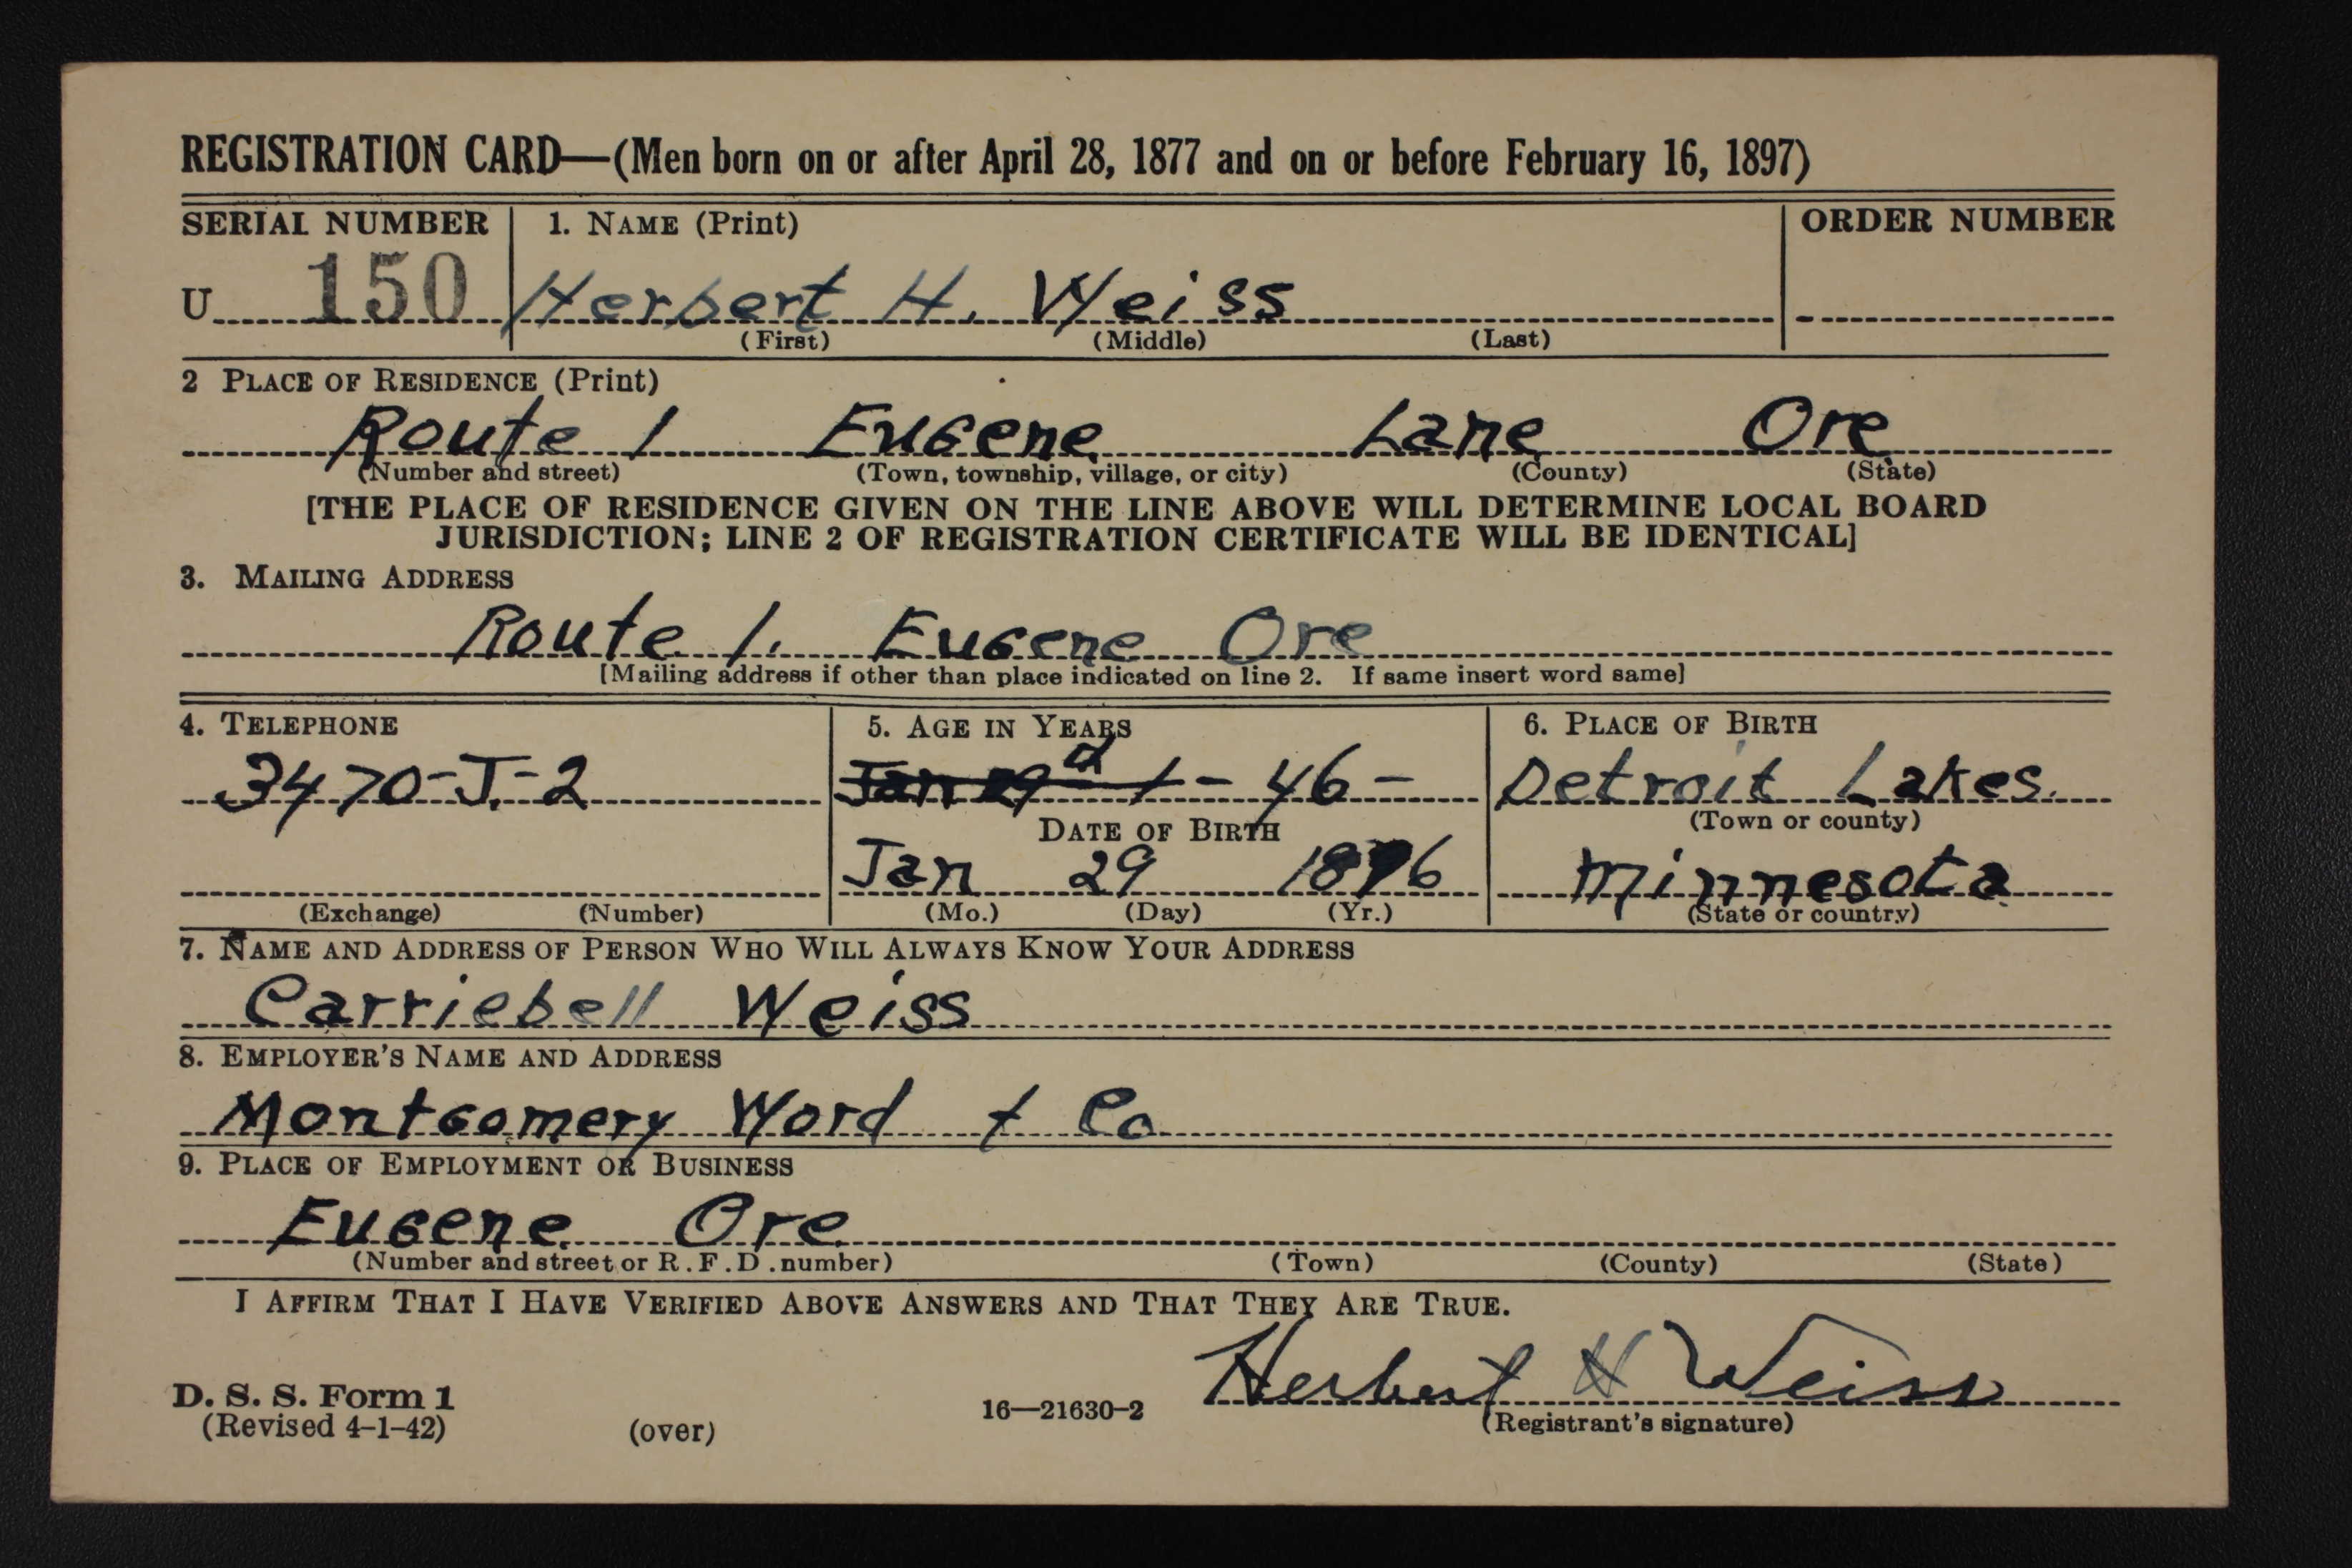 REGISTRATION CARD—(Men born on or after April 28, 1877 and on or before February 16, 1897)
SERIAL NUMBER 1. NAME (Print) ORDER NUMBER
U 150 Herbert H. Weiss
(First) (Middle) (Last)
2 PLACE OF RESIDENCE (Print)
Route 1 Eugene Lane Ore
(Number and street) (Town, township, village, or city) (County) (State)
[THE PLACE OF RESIDENCE GIVEN ON THE LINE ABOVE WILL DETERMINE LOCAL BOARD
JURISDICTION; LINE 2 OF REGISTRATION CERTIFICATE WILL BE IDENTICAL]
3. MAILING ADDRESS
Route 1. Eugene Ore
[Mailing address if other than place indicated on line 2. If same insert word same]
4. TELEPHONE 5. AGE IN YEARS 6. PLACE OF BIRTH
3470-J-2 Jan 29 - 46 - Detroit Lakes.
DATE OF BIRTH (Town or county)
Jan 29 1896 Minnesota
(Exchange) (Number) (Mo.) (Day) (Yr.) (State or country)
7. NAME AND ADDRESS OF PERSON WHO WILL ALWAYS KNOW YOUR ADDRESS
Carriebell Weiss
8. EMPLOYER'S NAME AND ADDRESS
Montgomery Word + Co
9. PLACE OF EMPLOYMENT OR BUSINESS
Eugene Ore
(Number and street or R.F.D. number) (Town) (County) (State)
I AFFIRM THAT I HAVE VERIFIED ABOVE ANSWERS AND THAT THEY ARE TRUE.
Herbert H Weiss
D. S. S. Form 1
(Revised 4-1-42) (over) 16—21630-2 (Registrant's signature)